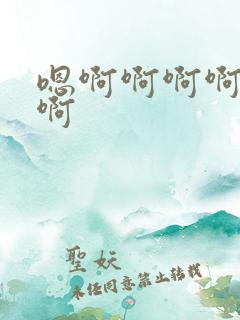 嗯啊啊啊啊
啊
聖妖
未经同意禁止转载